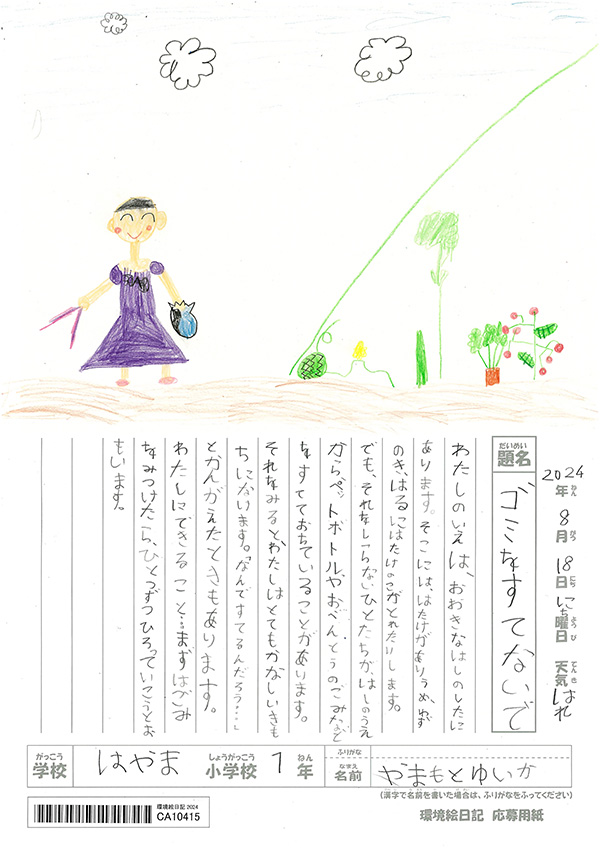 2024年 8月 18日 にち曜日 天気 はれ
ねん がつ にち ようび てんき
だいめい
題名
ゴミをすてないで
わたしのいえは、おおきなはしのしたに
あります。そこには、はたけがありうめ、ゆず
のき、はるにはたけのこがとれたりします。
でも、それをしらないひとたちが、はしのうえ
からペットボトルやおべんとうのごみなど
をすてておちていることがあります。
それをみると、わたしはとてもかなしいきも
ちになります。「なんですてるんだろう…」
とかんがえたときもあります。
わたしにできること…まずはごみ
をみつけたら、ひとつずつひろっていこうとお
もいます。
がっこう
学校
はやま
しょうがっこう
小学校
1
ねん
年
ふりがな
なまえ
名前
やまもとゆいか
(漢字で名前を書いた場合は、ふりがなをふってください)
環境絵日記 2024
CA10415
環境絵日記 応募用紙